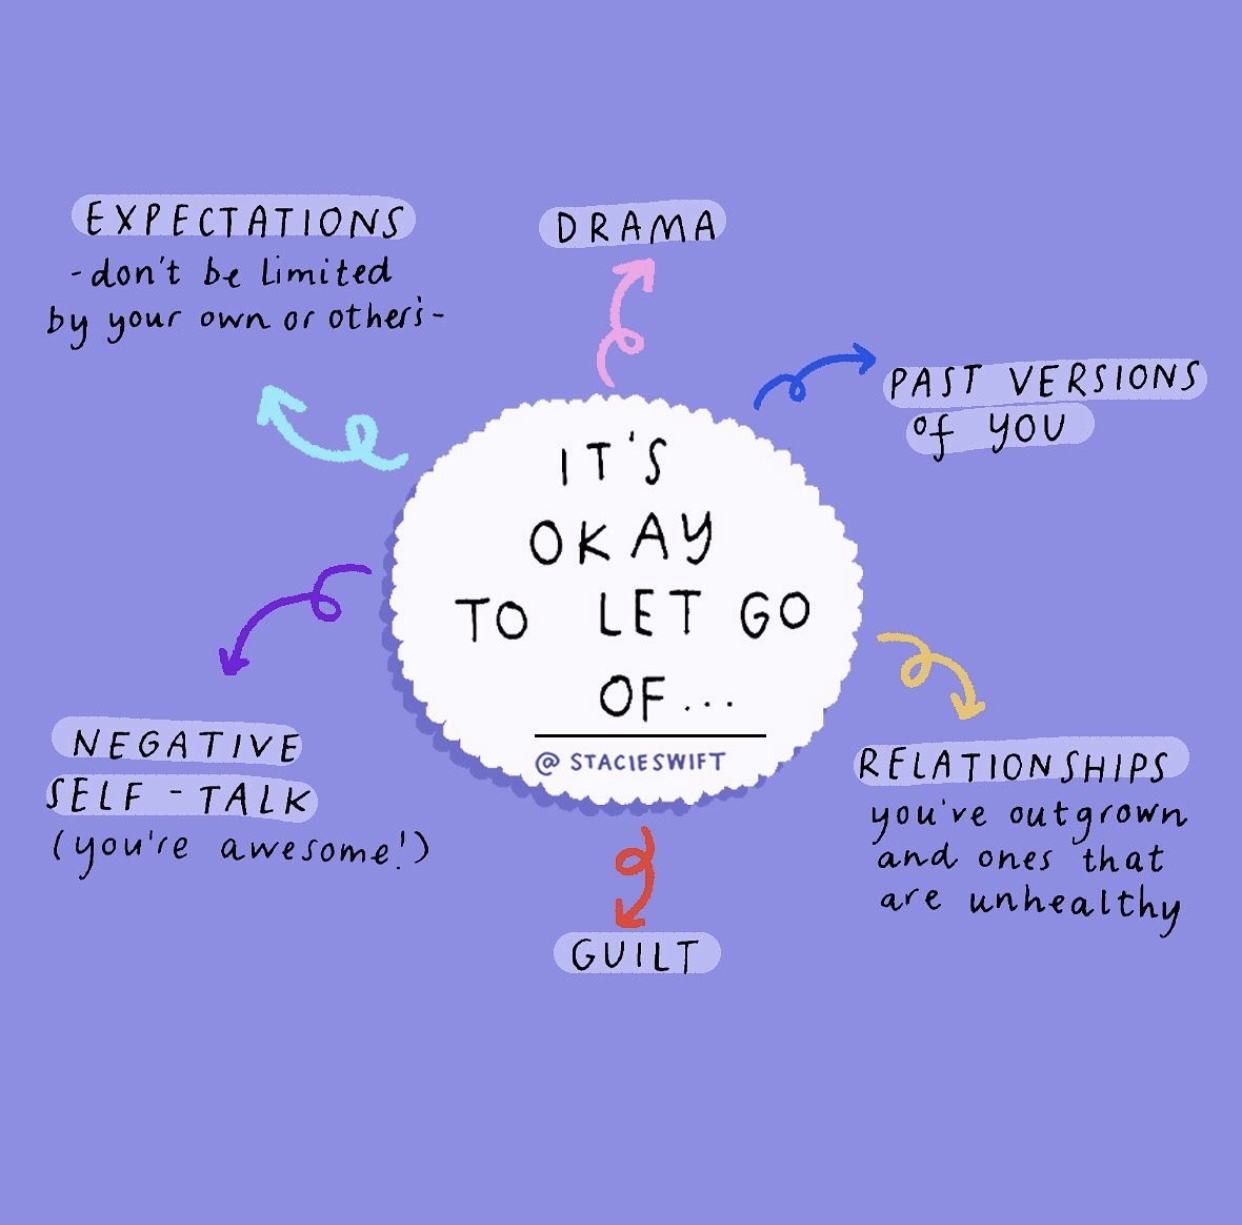 IT'S
OKAY
TO LET GO
OF...
@STACIESWIFT
EXPECTATIONS
-don't be limited
by your own or other's-
DRAMA
PAST VERSIONS
of YOU
RELATIONSHIPS
you've outgrown
and ones that
are unhealthy
GUILT
NEGATIVE
SELF-TALK
(you're awesome!)